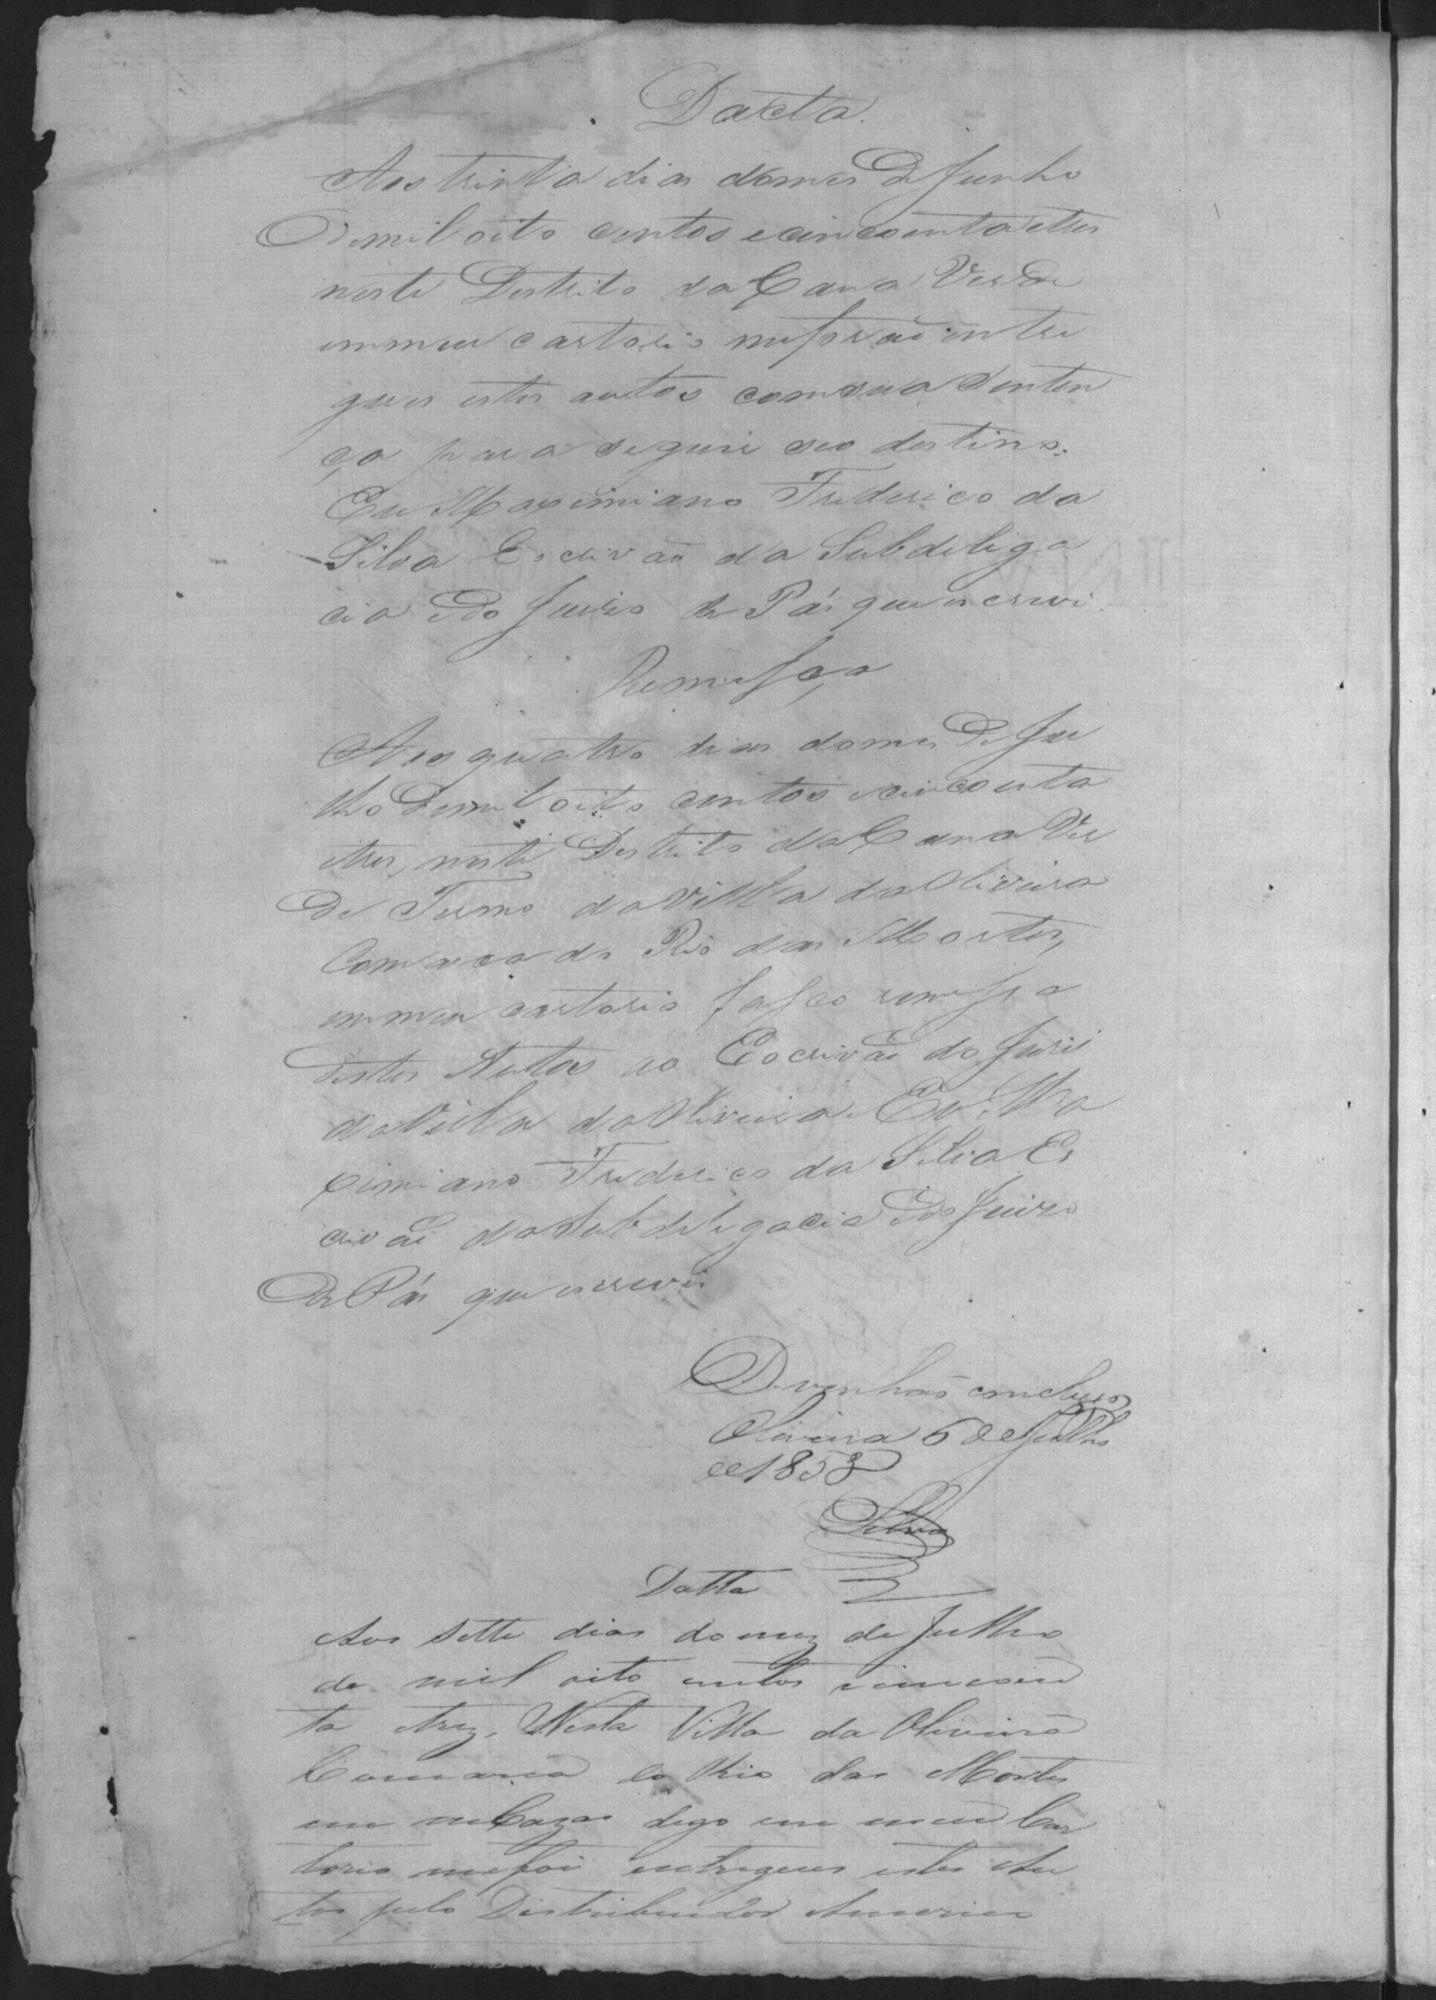 Dacta.
Aos trinta dias domes de Junho
de mil oito centos e cincoenta etres
neste Destrito da Cana Verde
emmeu cartorio meforão entre
gues estes autos comsua senten
ça para seguir seo destino.
Eu Maximiano Frederico da
Silva Escrivão da Subdelega
cia edo Juizo de Pás que escrevi.
Remessa
Aos quatro dias domes de Ju
lho demil oito centos ecincoenta
etres, neste Destrito da Cana Ver
de Termo da Villa da Oliveira
Comarca do Rio das Mortes,
emmeu cartorio fasso remessa
destes Autos ao Escrivão do Juri
da Villa da Oliveira. Eu Ma
ximiano Frederico da Silva Es
crivão da Subdelegacia edo Juizo
de Pás que escrevi.
Devenhão conclusos
Oliveira 6 de Julho
de 1853
Silva
Datta
Aos sette dias do mez de Julho
de mil oito centos e cincoen
ta etrez, Nesta Villa da Oliveira
Comarca do Rio das Mortes
em Cazas digo em meu Car
torio mefoi entregues estes Au
tos pelo Destribuidor Americo